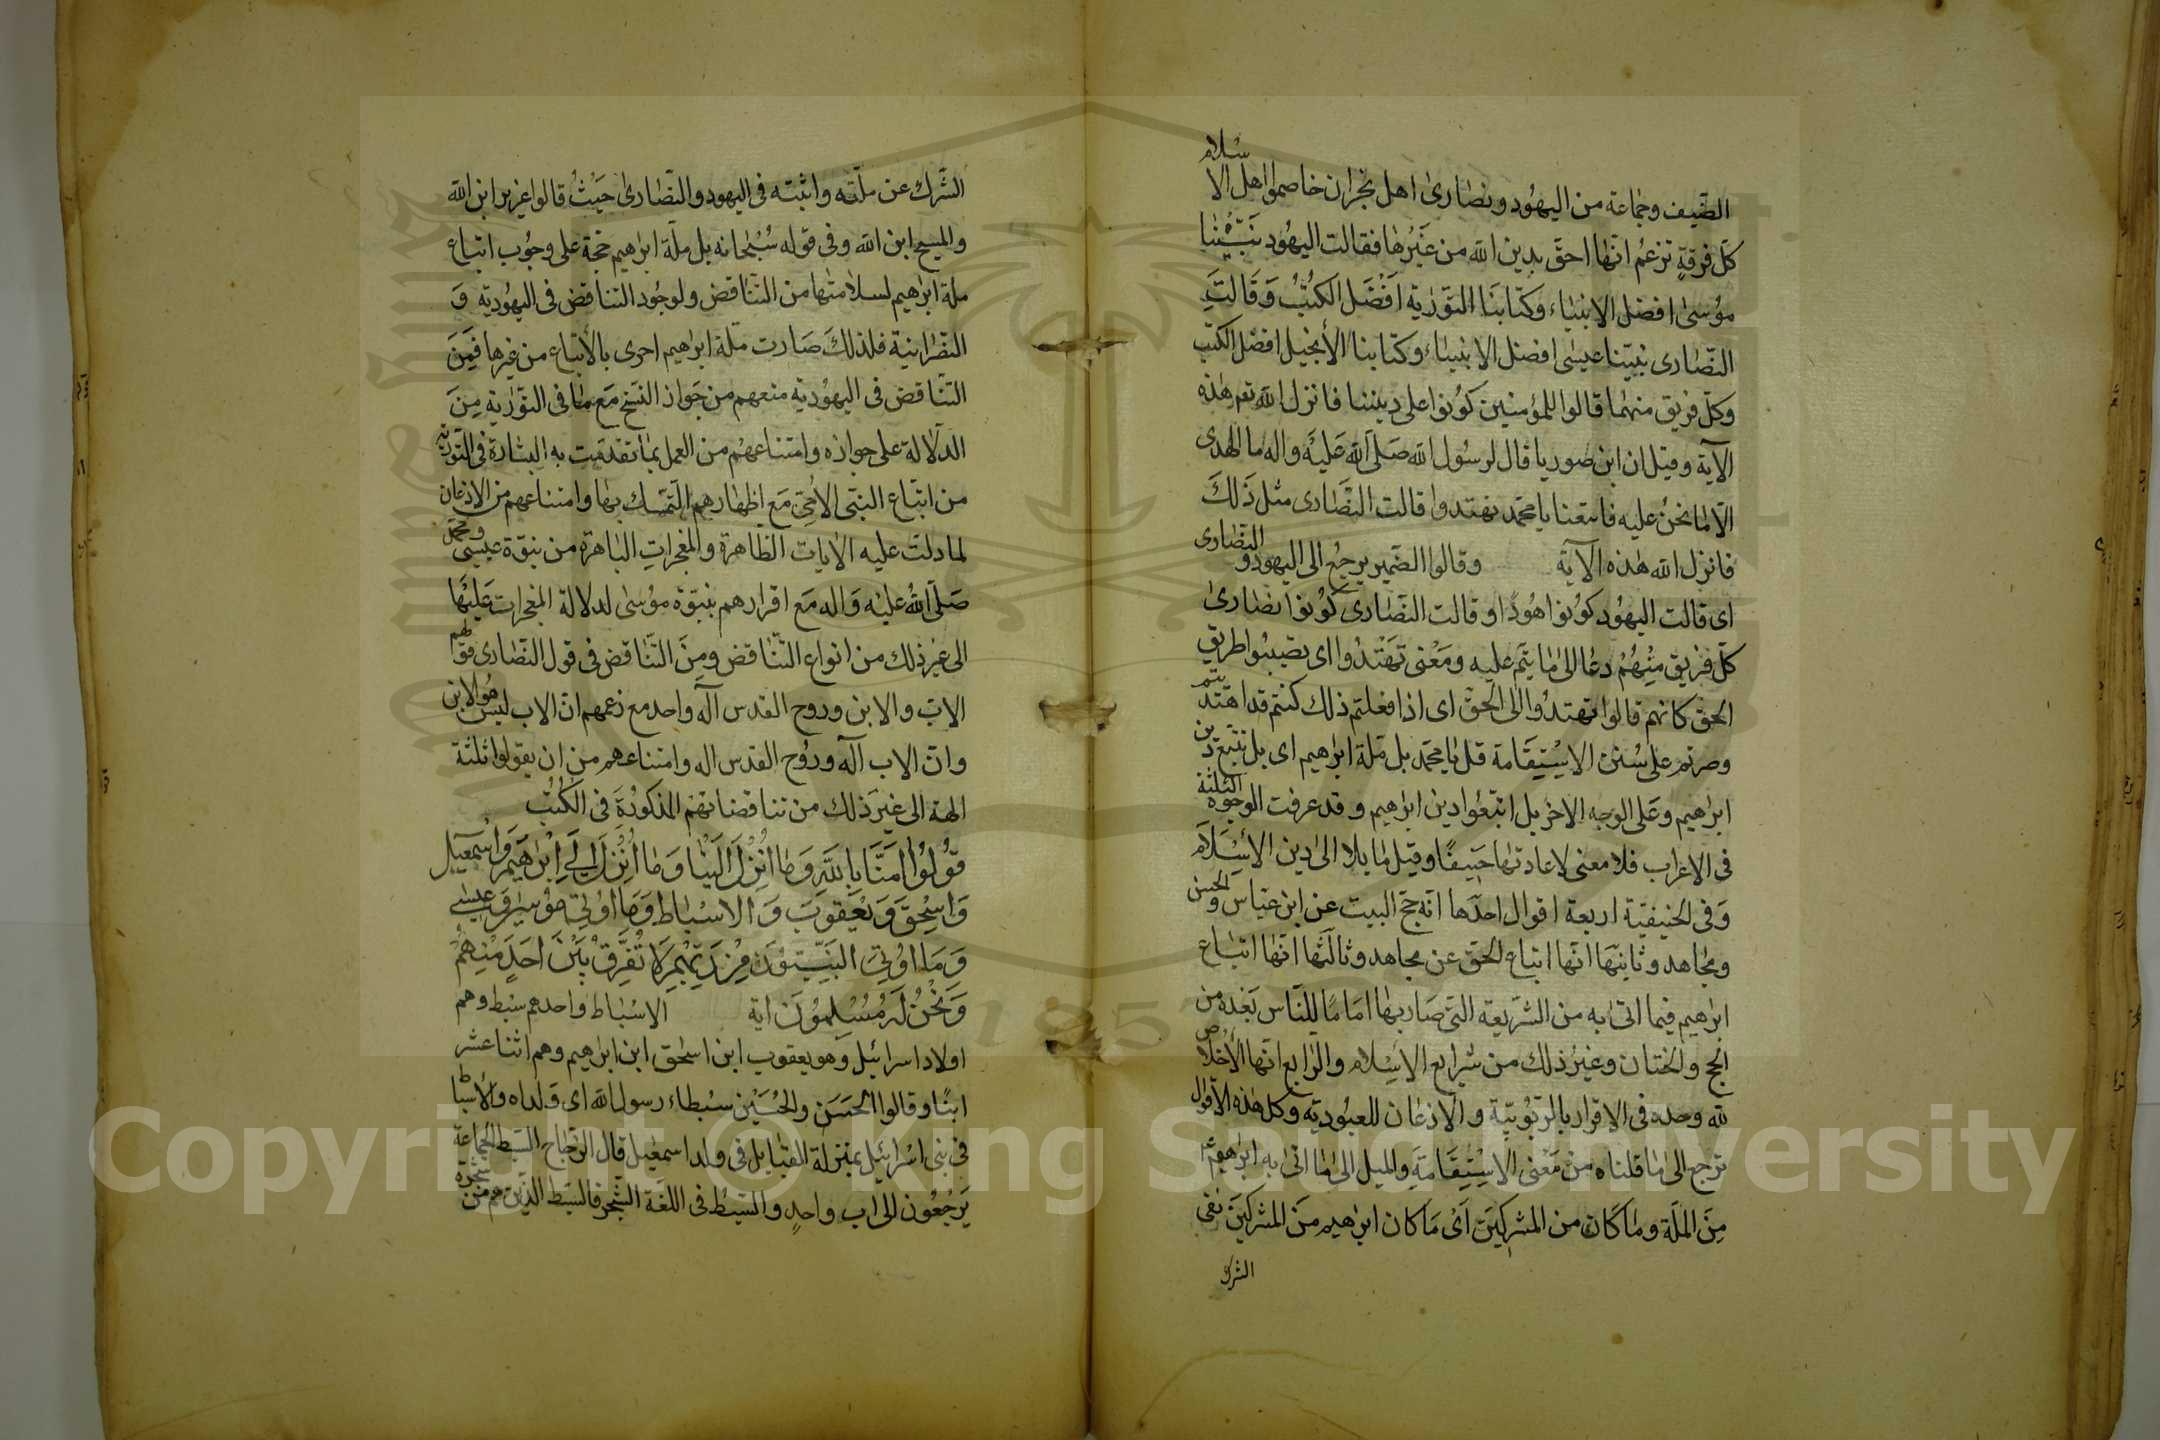 الضيف وجماعة من اليهود ونصارى اهل نجران خاصموا اهل الاسلام
كل فرقة تزعم انها احق بدين الله من غيرها فقالت اليهود نبينا
موسى افضل الانبياء وكتابنا التورية افضل الكتب وقالت
النصارى نبينا عيسى افضل الانبياء وكتابنا الأنجيل افضل الكتب
وكل فريق منهما قالوا للمؤمنين كونوا على ديننا فانزل الله تعم هذه
الآية وقيل ان ابن صوريا قال لرسول الله صلى الله عليه واله ما الهدى
الا ما نحن عليه فاتبعنا يا محمد تهتد وقالت النصارى مثل ذلك
فانزل الله هذه الآية وقالوا الضمير يرجع الى اليهود والنصارى
اى قالت اليهود كونوا هودا وقالت النصارى كونوا نصارى
كل فريق منهم دعا الى ما يتم عليه ومعنى تهتدوا اى تصيبوا طريق
الحق كانهم قالوا تهتدوا الى الحق اى اذا فعلتم ذلك كنتم قد اهتديتم
وصرتم على سنن الاستقامة قل يا محمد بل ملة ابراهيم اى بل نتبع دين
ابراهيم وعلى الوجه الاخر بل اتبعوا دين ابراهيم وقد عرفت الوجوه الثلثة
فى الاعراب فلا معنى لاعادتها حنيفا وقيل مايلا الى دين الاسلام
وفى الحنيفية اربعة اقوال احدها انه حج البيت عن ابن عباس والحسن
ومجاهد وثانيها انها اتباع الحق عن مجاهد وثالثها انها اتباع
ابراهيم فيما اتى به من الشريعة التى صار بها اماما للناس بعده من
الحج والختان وغير ذلك من شرايع الاسلام والرابع انها الاخلاص
لله وحده فى الاقرار بالربوبية والاذعان للعبودية وكل هذه الاقوال
ترجع الى ما قلناه من معنى الاستقامة والميل الى ما اتى به ابراهيم
من الملة وما كان من المشركين اى ما كان ابراهيم من المشركين نفى
الشرك
الشرك عن ملته واثبته فى اليهود والنصارى حيث قالوا عزير ابن الله
والمسيح ابن الله وفى قوله سبحانه بل ملة ابراهيم حجة على وجوب اتباع
ملة ابراهيم لسلامتها من التناقض ولوجود التناقض فى اليهودية و
النصرانية فلذلك صارت ملة ابراهيم احرى بالأتباع من غيرها فمن
التناقض فى اليهودية منعهم من جواز النسخ مع ما فى التورية من
الدلالة على جوازه وامتناعهم من العمل بما تقدمت به البشارة فى التورية
من اتباع النبى الامى مع اظهارهم التمسك بها وامتناعهم من الاذعان
لما دلت عليه الايات الظاهرة والمعجزات الباهرة من نبوة عيسى ومحمد
صلى الله عليه واله مع اقرارهم بنبوة موسى لدلالة المعجزات عليها
الى غير ذلك من انواع التناقض ومن التناقض فى قول النصارى قولهم
الاب والابن وروح القدس آله واحد مع زعمهم ان الاب ليس هو الابن
وان الاب آله وروح القدس اله وامتناعهم من ان يقولوا ثلثة
الهة الى غير ذلك من تناقضاتهم المذكورة فى الكتب
قولوا امنا بالله وما انزل الينا وما انزل الى ابراهيم واسمعيل
واسحق ويعقوب والاسباط وما اوتى موسى وعيسى
وما اوتى النبيون من ربهم لا نفرق بين احد منهم
ونحن له مسلمون اية الاسباط واحدهم سبط وهم
اولاد اسرائيل وهو يعقوب ابن اسحق ابن ابراهيم وهم اثنا عشر
ابنا وقالوا الحسن والحسين سبطاء رسول الله اى ولداه والاسباط
فى بنى اسرائيل بمنزلة القبايل فى ولد اسمعيل قال الزجاج السبط الجماعة
يرجعون الى اب واحد والسبط فى اللغة الشجر فالسبط الذين هم من شجرة
Copyright © King Saud University
1957